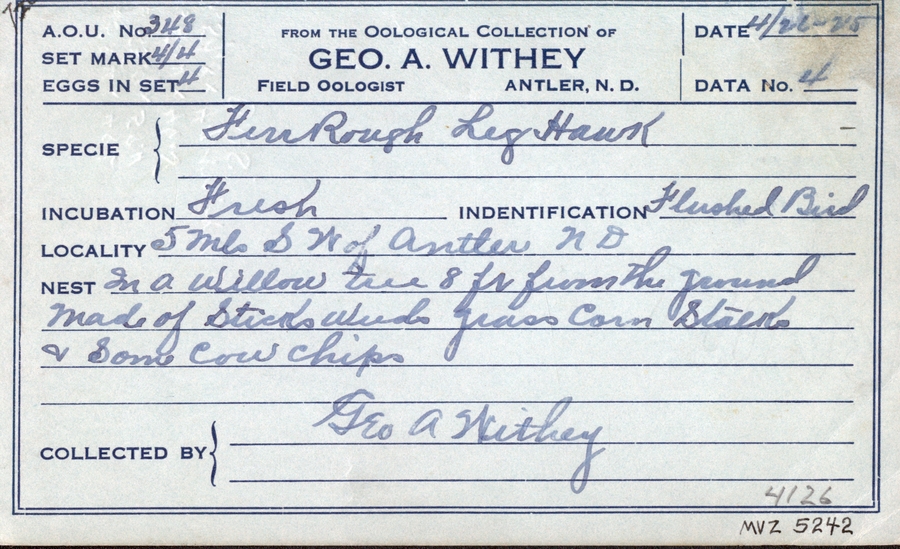 A.O.U. No. 348
SET MARK 4/4
EGGS IN SET 4
FROM THE OOLOGICAL COLLECTION OF
GEO. A. WITHEY
FIELD OOLOGIST ANTLER, N. D.
DATE 4/26-25
DATA No. 4
SPECIE Ferr Rough Leg Hawk
INCUBATION Fresh INDENTIFICATION Flushed Bird
LOCALITY 5 Mls S W of Antler N D
NEST In a willow tree 8 ft from the ground
made of Sticks weeds grass Corn Stalks
& Some cow chips
Geo A Withey
COLLECTED BY
4126
MVZ 5242